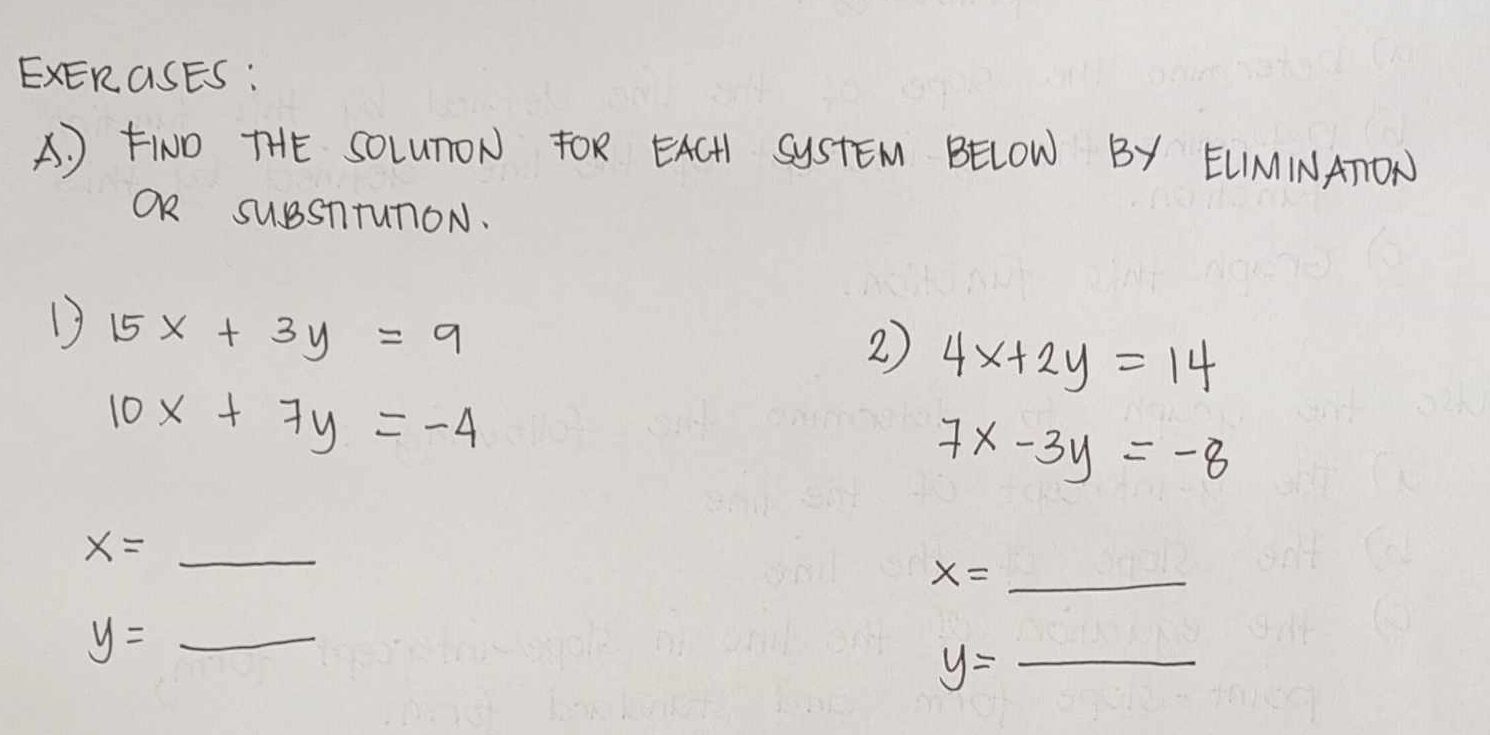 EXERCISES:
A.) FIND THE SOLUTION FOR EACH SYSTEM BELOW BY ELIMINATION
OR SUBSTITUTION.
1) 15x + 3y = 9
10x + 7y = -4
x = ____
y = ____
2) 4x+2y = 14
7x -3y = -8
x = ____
y = ____